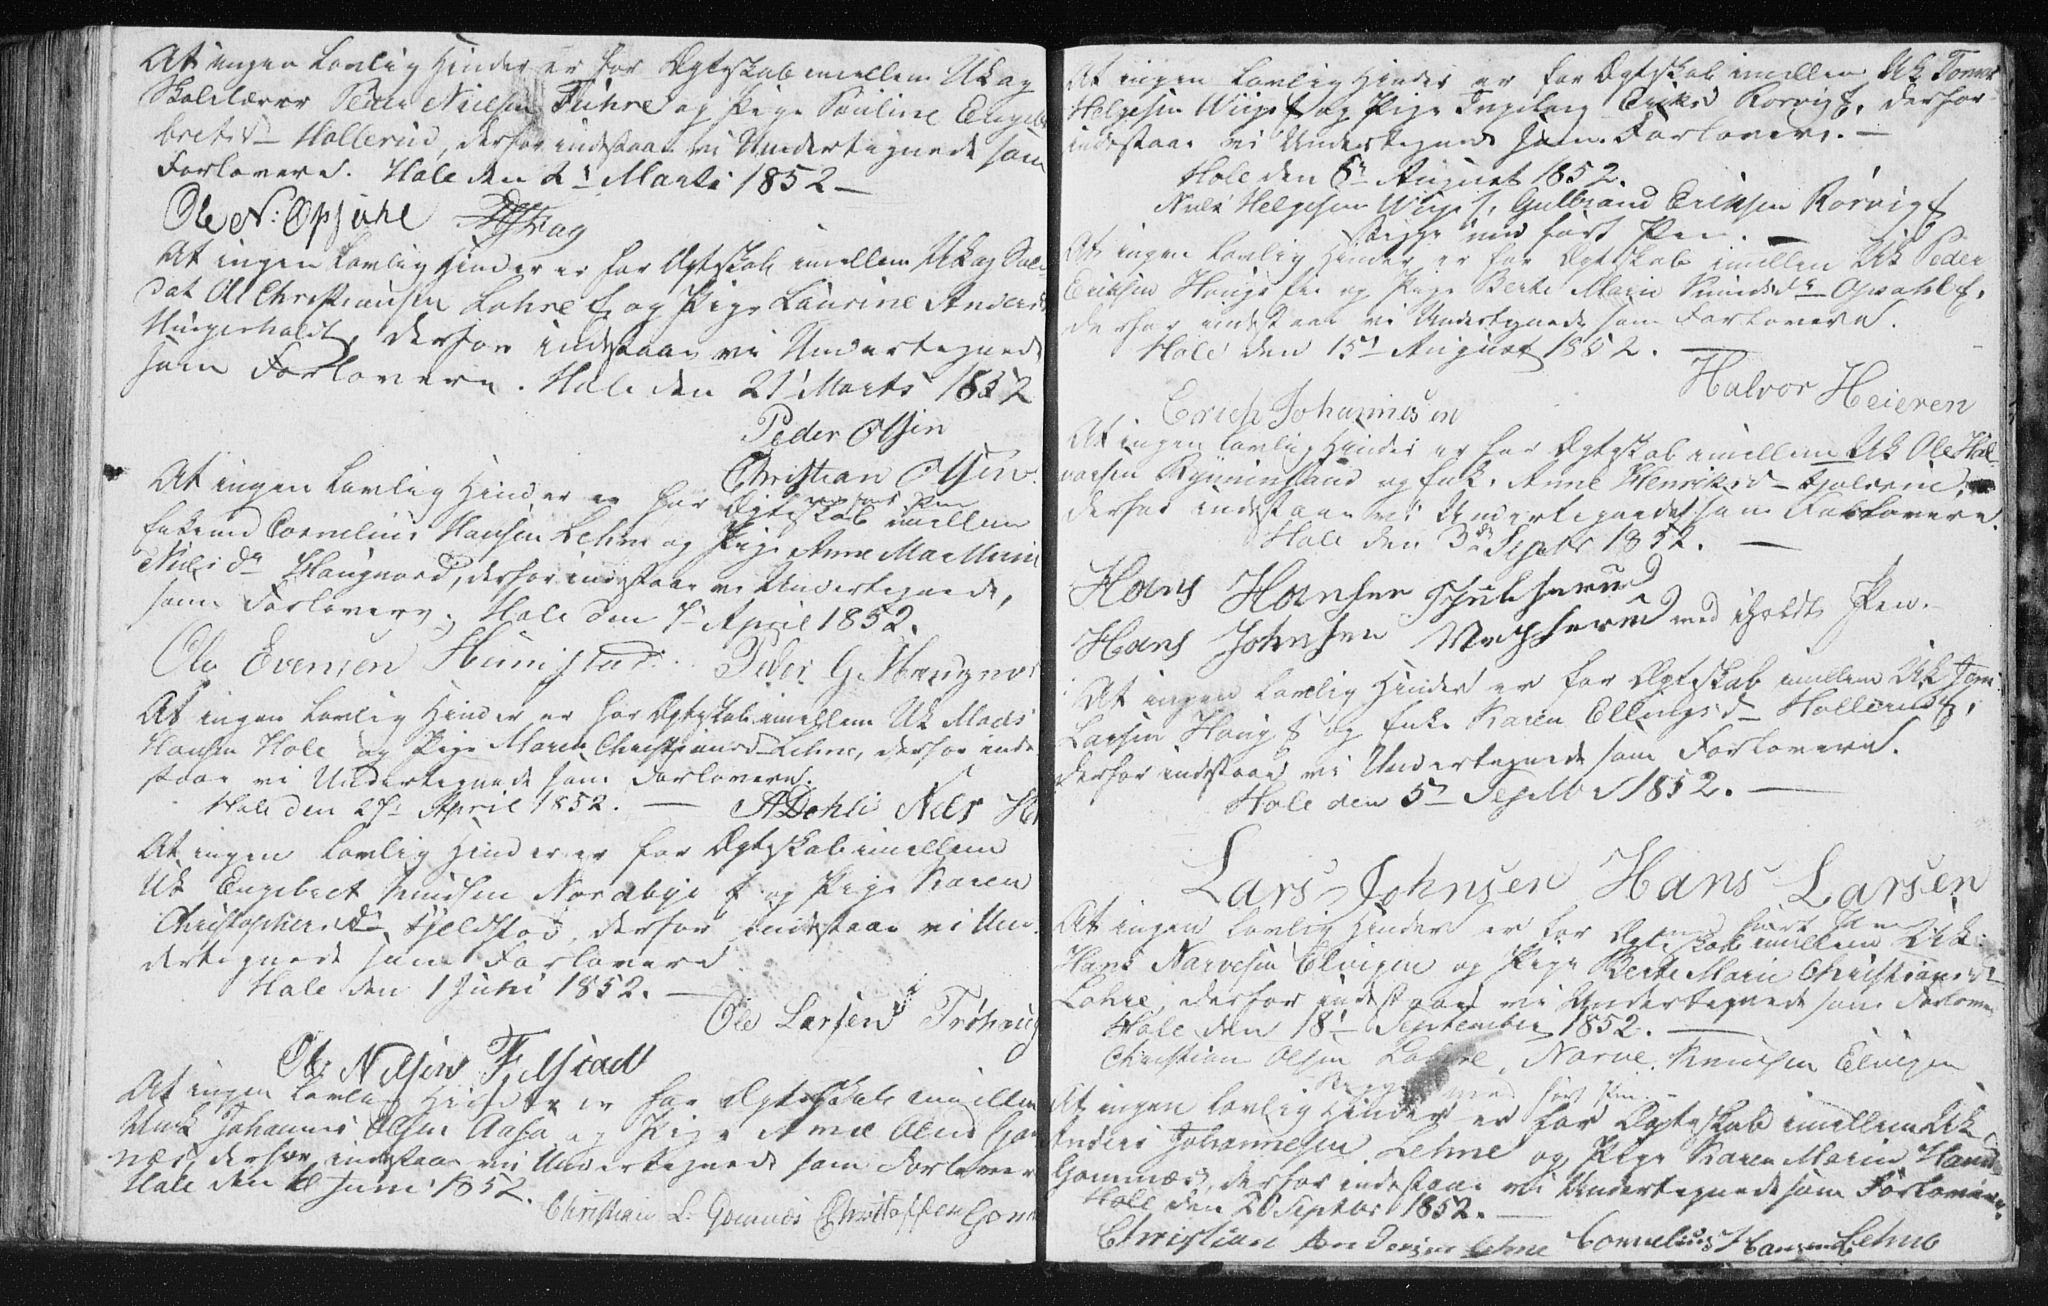 At ingen lovlig Hinder er for Ægteskab imellem Uk og
Skolelærer Peder Nielsen Fuhre og Pige Pauline Engel
bretsd Hollerud, derfor indestaae vi Undertegnede som
Forlovere. Hole den 2 Marts 1852 —
Ole N: Opsahl
At ingen lovlig Hinder er for Ægteskab imellem Uk og Sol-
dat Ole Christiansen Lohre og Pige Laurine Anders
derfor indestaae vi Undertegnede
som Forlovere. Hole den 21 Marts 1852
Peder Olsen
Christian Olsen
med ført Pen
At ingen lovlig Hinder er for Ægteskab imellem
Enkemd Cornelius Hansen Lehne og Pige Anne
Nielsd Haugnord, derfor indestaae vi Undertegnede,
som Forlovere. Hole den 7 April 1852.
Ole Evensen Peder G.
At ingen lovlig Hinder er for Ægteskab imellem Uk Mads
Hansen Hole og Pige Maren Christiansd Lehne, derfor inde
staae vi Undertegnede som Forlovere.
Hole den 27 April 1852. — A Dehli Nils
At ingen lovlig Hinder er for Ægteskab imellem
Uk Engebret Knudsen Nordbye og Pige Karen
Christophersd Fjeldstad, derfor indestaae vi Un-
dertegnede som Forlovere
Hole den 1 Juni 1852. —
Ole Larsen Frøhaug
Ole Nilsen Fjelstad
At ingen lovlig Hinder er for Ægteskab imellem
Johannes Olsen Aasa og Pige Anne Olsd Gom
næs, derfor indestaae vi Undertegnede som Forlover
Hole den Juni 1852.
Christian L. Gomnæs Christoffer Gomn
At ingen lovlig Hinder er for Ægteskab imellem Uk
Helgesen Wiig og Pige Ingeborg Eriksd Rørvig, derfor
indestaae vi Undertegnede som Forlovere. —
Hole den 8 August 1852.
Niels Helgesen Wiig, Gulbrand Eriksen Rørvig
Begge med ført Pen. —
At ingen lovlig Hinder er for Ægteskab imellem Uk Peder
Eriksen og Pige Berte Marie Knudsd Opsahl,
derfor indestaae vi Undertegnede som Forlovere.
Hole den 15 August 1852. —
Halvor Heieren
Erich Johannesen
At ingen lovlig Hinder er for Ægteskab imellem Uk Ole Hal-
vorsen og Enke Anne Henriksd
derfor indestaae vi Undertegnede som Forlovere.
Hole den 3de Septbr 1852. —
Hans Hansen
Hans Johnsen med iholdt Pen.
At ingen lovlig Hinder er for Ægteskab imellem Uk
Larsen Haug og Enke Karen Ellingsd Hollerud,
derfor indestaae vi Undertegnede som Forlovere.
Hole den 5 Septbr 1852. —
Lars Johnsen Hans Larsen
med ført Pen
At ingen lovlig Hinder er for Ægteskab imellem Uk
Hans Narvesen Elvigen og Pige Berte Marie Christiansd
Lohre, derfor indestaae vi Undertegnede som Forlovere
Hole den 18 September 1852. —
Christian Olsen Lohre, Narve Knudsen Elvigen
Begge med ført Pen. —
At ingen lovlig Hinder er for Ægteskab imellem Uk
Anders Johannesen Lehne og Pige Karen Marie Hansd
Gomnæs, derfor indestaae vi Undertegnede som Forlovere.
Hole den 26 Septbr 1852. —
Christian Andersen Lehne Cornelius Hansen Lehne